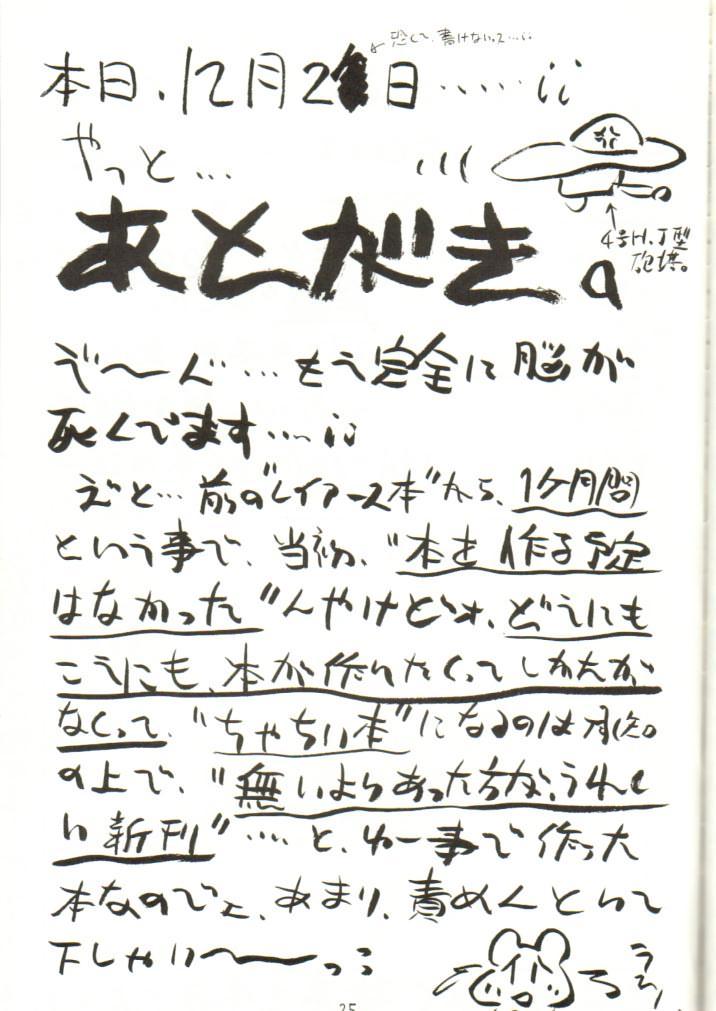 恐くて、書けないって…¡¡
本日、12月2 日……¡¡
やっと…
あとがき。
4号H.J型
砲塔。
ぞ〜ん…もう完全に脳が
死んでます…¡¡
えと…前の"レイアース本"から、1ヶ月間
という事で、当初、"本を作る予定
はなかった"んやけどォ、どうにも
こうにも、本が作りたくってしかたが
なくって、"ちゃちい本"になるのは承知。
の上で、"無いよりあった方が、うれし
い新刊"…と、ゆー事で作った
本なのでェ、あまり、責めんといて
下しゃい〜〜っっ
うろ
25